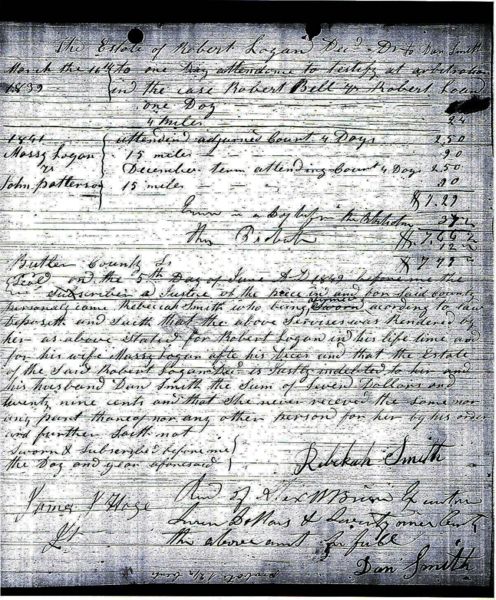 The Estate of Robert Logan Decd Dr to Dan Smith
March the 16th to one Day attendance to testify at arbitration
1839 in the case Robert Bell vs Robert Logan
one Day
4 miles 24
1841 attend adjurned Court 4 Days 2,50
Massy Logan 15 miles 90
vs December term attending Court 4 Days 2,50
John Patterson 15 miles 90
$7.29
Error in a Day before the
the Probate
$ 7,79
Butler County Ss
Seal on the 5th Day of June A.D. before me the
Subscriber a Justice of the peice in and for said county
personaly came Rebecca Smith who being Sworn acording to law
Deposeth and Saith that the above Servises was Rendered by
her as above Stated for Robert Logan in his life time and
for his wife Massy Logan after his Dec and that the Estate
of the Said Robert Logan Decd is Justly indebted to her and
his husband Dan Smith the Sum of Seven Dollars and
twenty nine cents and that She never receved the same nor
any part thareof nor any other person for her by his order
and further Saith not
Sworn & Subscribd before me
the Day and year aforesaid
Rebekah Smith
James Hoge
Recd of Executor
Seven Dollars & Seventy nine Cents
the above amt in full
Dan Smith